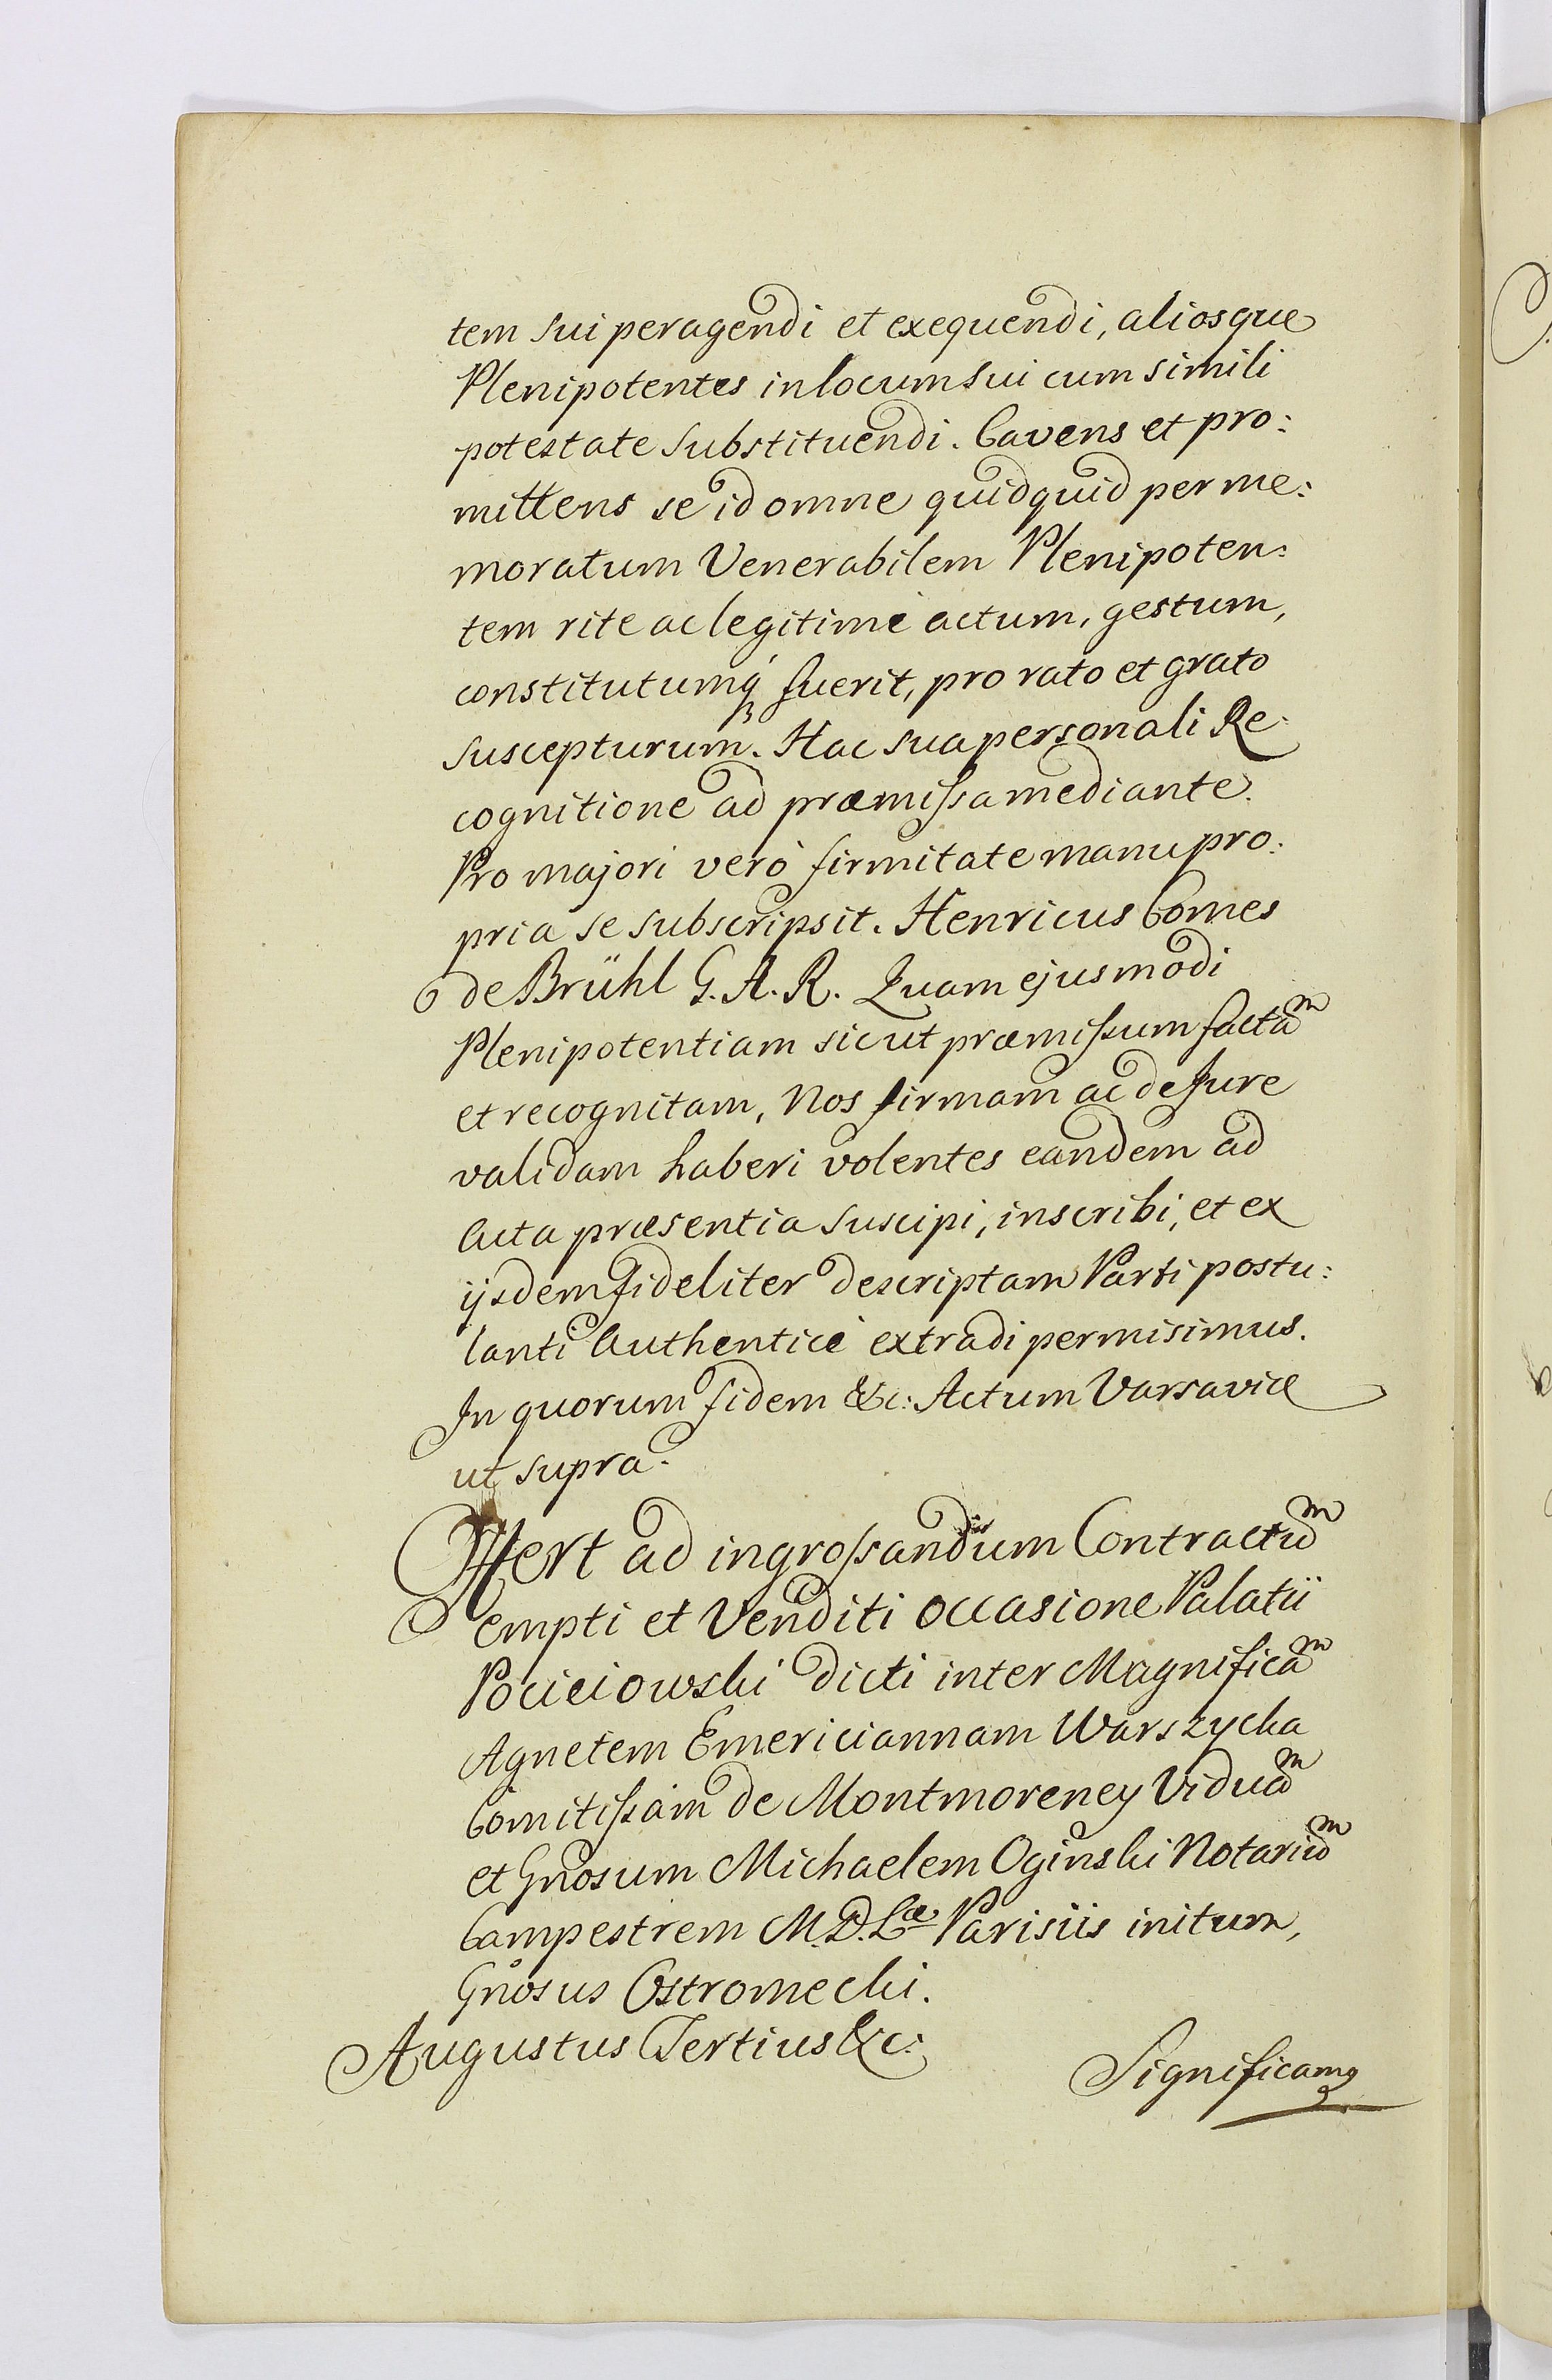 tem sui peragendi et exequendi, aliosque
Plenipotentes in locum sui cum simili
potestate substituendi. Cavens et pro:
mittens se id omne quidquid per me:
moratum Venerabilem Plenipoten:
tem rite ac legitimè actum, gestum,
constitutumq́ fuerit, pro rato et grato
suscepturum. Hac sua personali Re:
cognitione ad præmissa mediante.
Pro majori verò firmitate manu pro:
pria se subscripsit. Henricus Comes
de Brühl G. A. R. Quam ejusmodi
Plenipotentiam sicut præmissum factaᵐ
et recognitam, Nos firmam ac de Jure
validam haberi volentes eandem ad
Acta præsentia suscipi, inscribi, et ex
ijsdem fideliter descriptam Parti postu:
lanti Authenticè extradi permisimus.
In quorum fidem &c: Actum Varsaviæ
ut supra.
Offert ad ingrossandum Contractuᵐ
empti et Venditi occasione Palatii
Pocieiowski dicti inter Magnificaᵐ
Agnetem Emericiannam Warszycka
Comitissam de Montmorencÿ Viduaᵐ
et Gnosum Michaelem Oginski Notariuᵐ
Campestrem M. D. Læ Parisiis initum,
Gnosus Ostromecki.
Augustus Tertius &c:
Significamꝯ